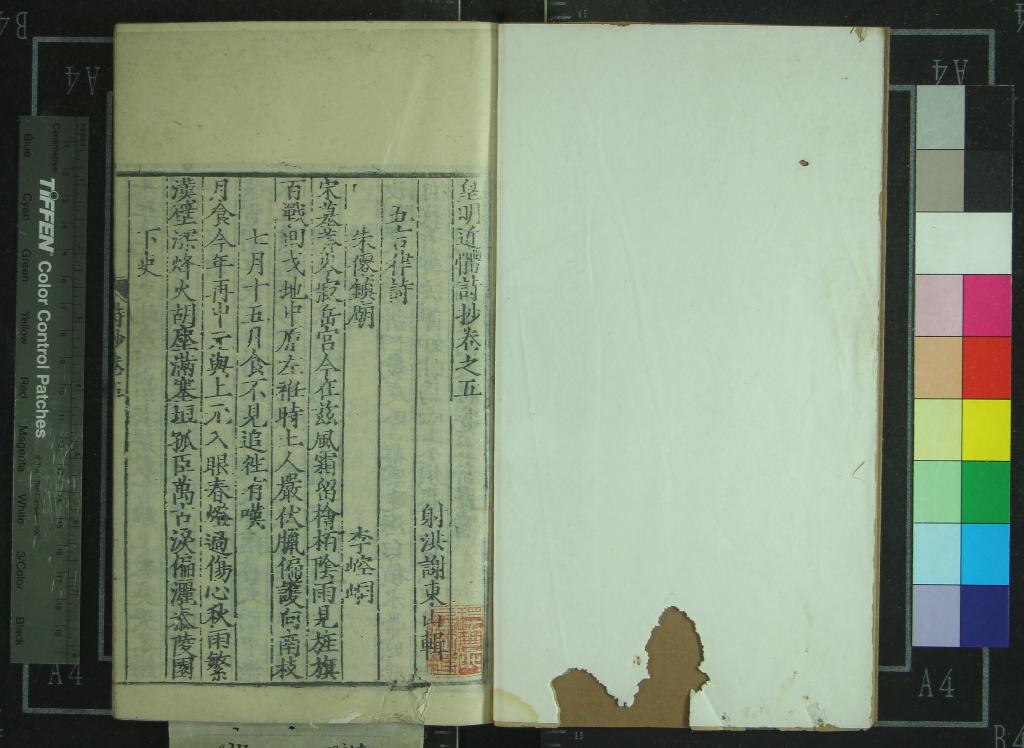 皇明近體詩抄卷之五
射洪謝東山輯
五言律詩
朱僊鎮廟
李崆峒
宋墓莽岑寂岳宮今在茲風霜留檜柏陰雨見旌旗
百戰回戈地中原左袵時土人嚴伏臘偏護向南枝
七月十五月食不見追徃有嘆
月食今年再中元與上元入眼春燈過傷心秋雨繁
漢壁深烽火胡塵滿塞垣孤臣萬古淚偏灑泰陵園
下史
詩抄卷五
TIFFEN Color Control Patches
Blue
Cyan
Green
Yellow
Red
Magenta
White
3/Color
Black
A4
A4
A4
A4
B4